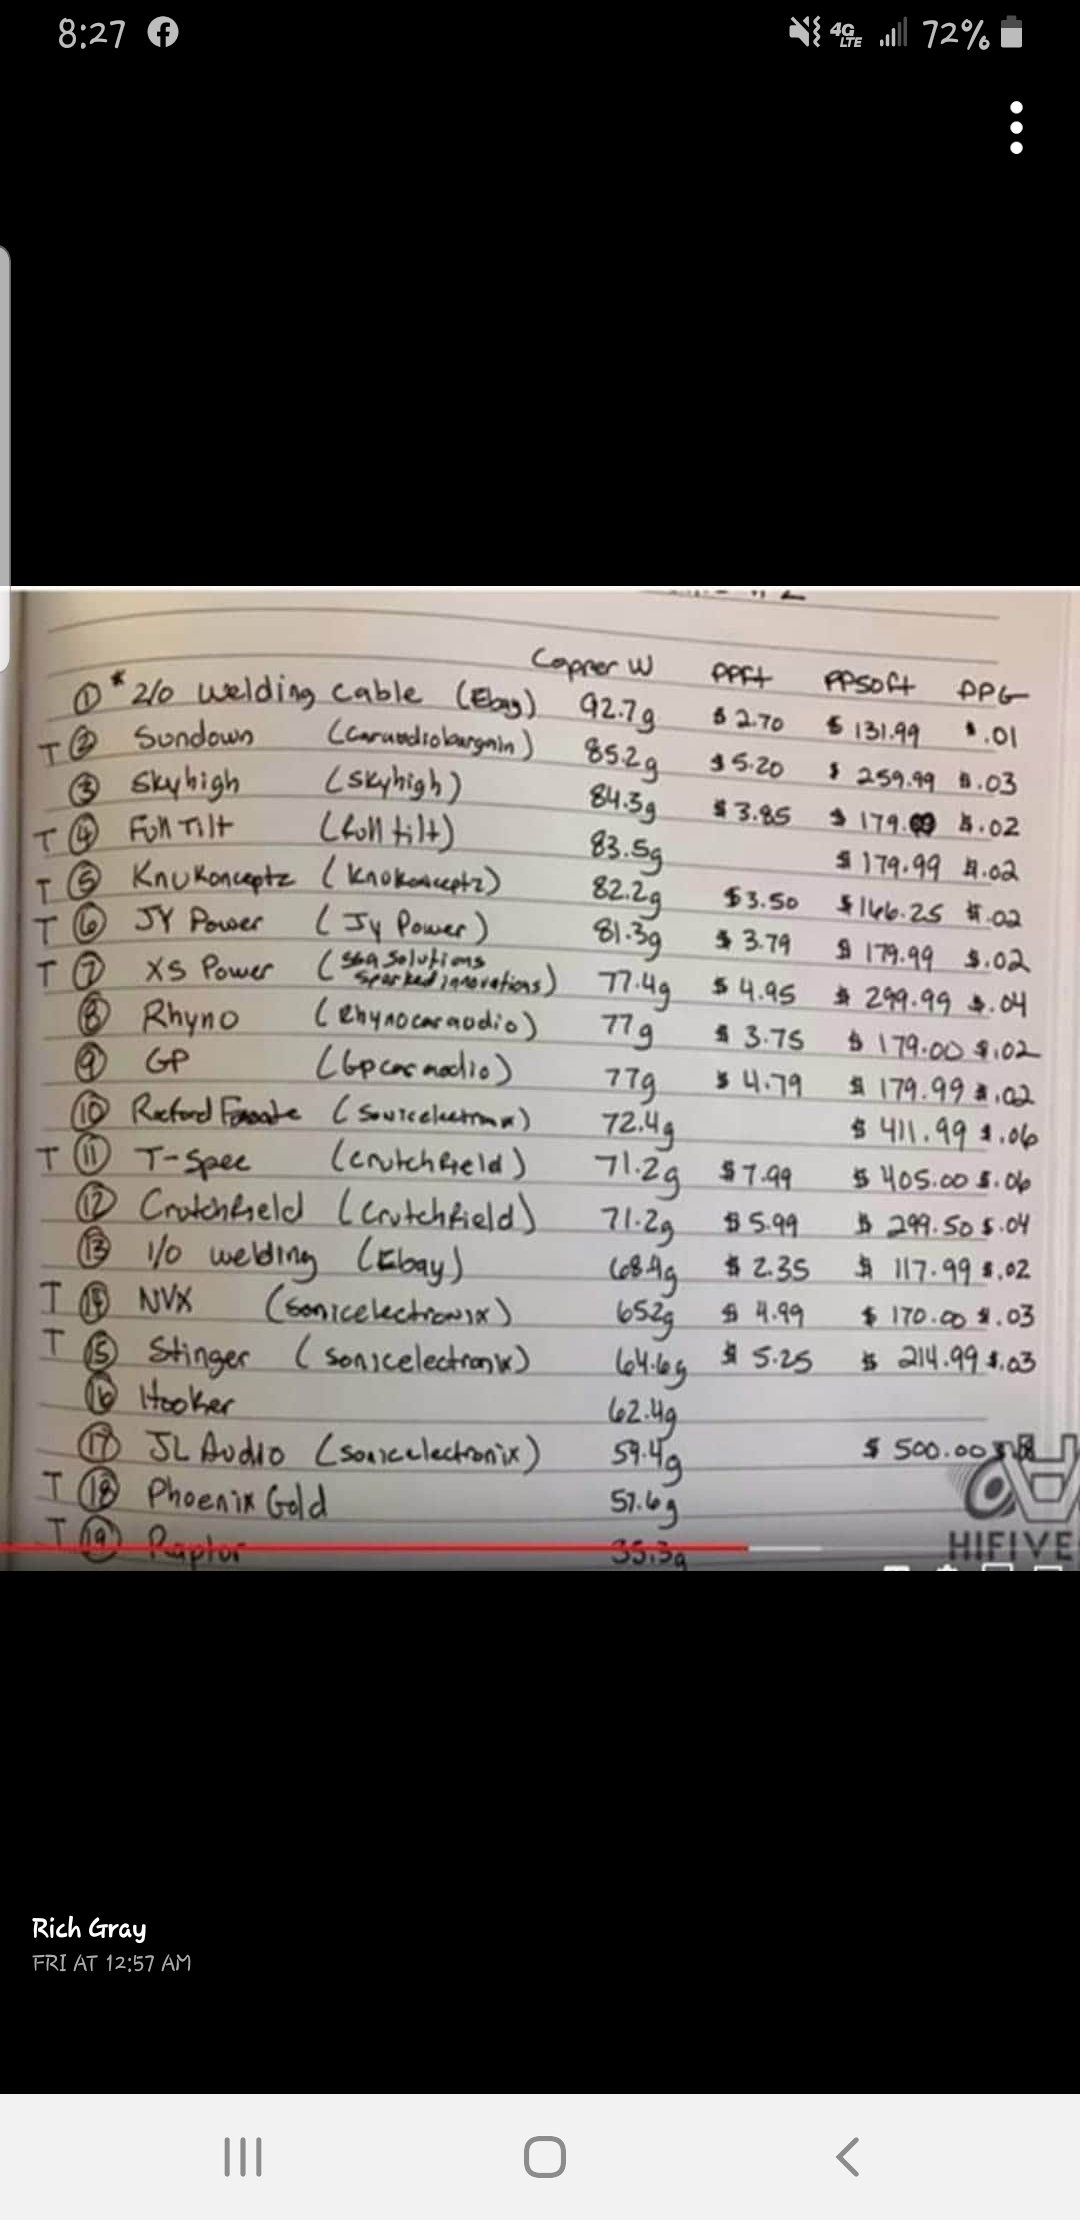 8:27 4G LTE 72%
Copper W PPFt PP50ft PPG
① * 2/0 welding cable (Ebay) 92.7g $2.70 $131.99 $.01
T ② Sundown (Caraudiobargain) 85.2g $5.20 $259.99 $.03
③ Skyhigh (Skyhigh) 84.3g $3.85 $179.00 $.02
T ④ Full Tilt (full tilt) 83.5g $179.99 $.02
T ⑤ KnuKonceptz (Knukonceptz) 82.2g $3.50 $166.25 $.02
T ⑥ JY Power (Jy Power) 81.3g $3.79 $179.99 $.02
T ⑦ XS Power (SBA Solutions Sparked innovations) 77.4g $4.95 $299.99 $.04
⑧ Rhyno (Rhynocaraudio) 77g $3.75 $179.00 $.02
⑨ GP (Gpcaraudio) 77g $4.79 $179.99 $.02
⑩ Rockford Fosgate (Sonicelectronix) 72.4g $411.99 $.06
T ⑪ T-Spec (Crutchfield) 71.2g $7.99 $405.00 $.06
⑫ Crutchfield (Crutchfield) 71.2g $5.99 $299.50 $.04
⑬ 1/0 welding (Ebay) 68.9g $2.35 $117.99 $.02
T ⑭ NVX (Sonicelectronix) 65.2g $4.99 $170.00 $.03
T ⑮ Stinger (sonicelectronix) 64.6g $5.25 $214.99 $.03
⑯ Hooker 62.4g
⑰ JL Audio (sonicelectronix) 59.4g $500.00
T ⑱ Phoenix Gold 57.6g
T ⑲ Raptor 35.3g
HIFIVE
Rich Gray
FRI AT 12:57 AM